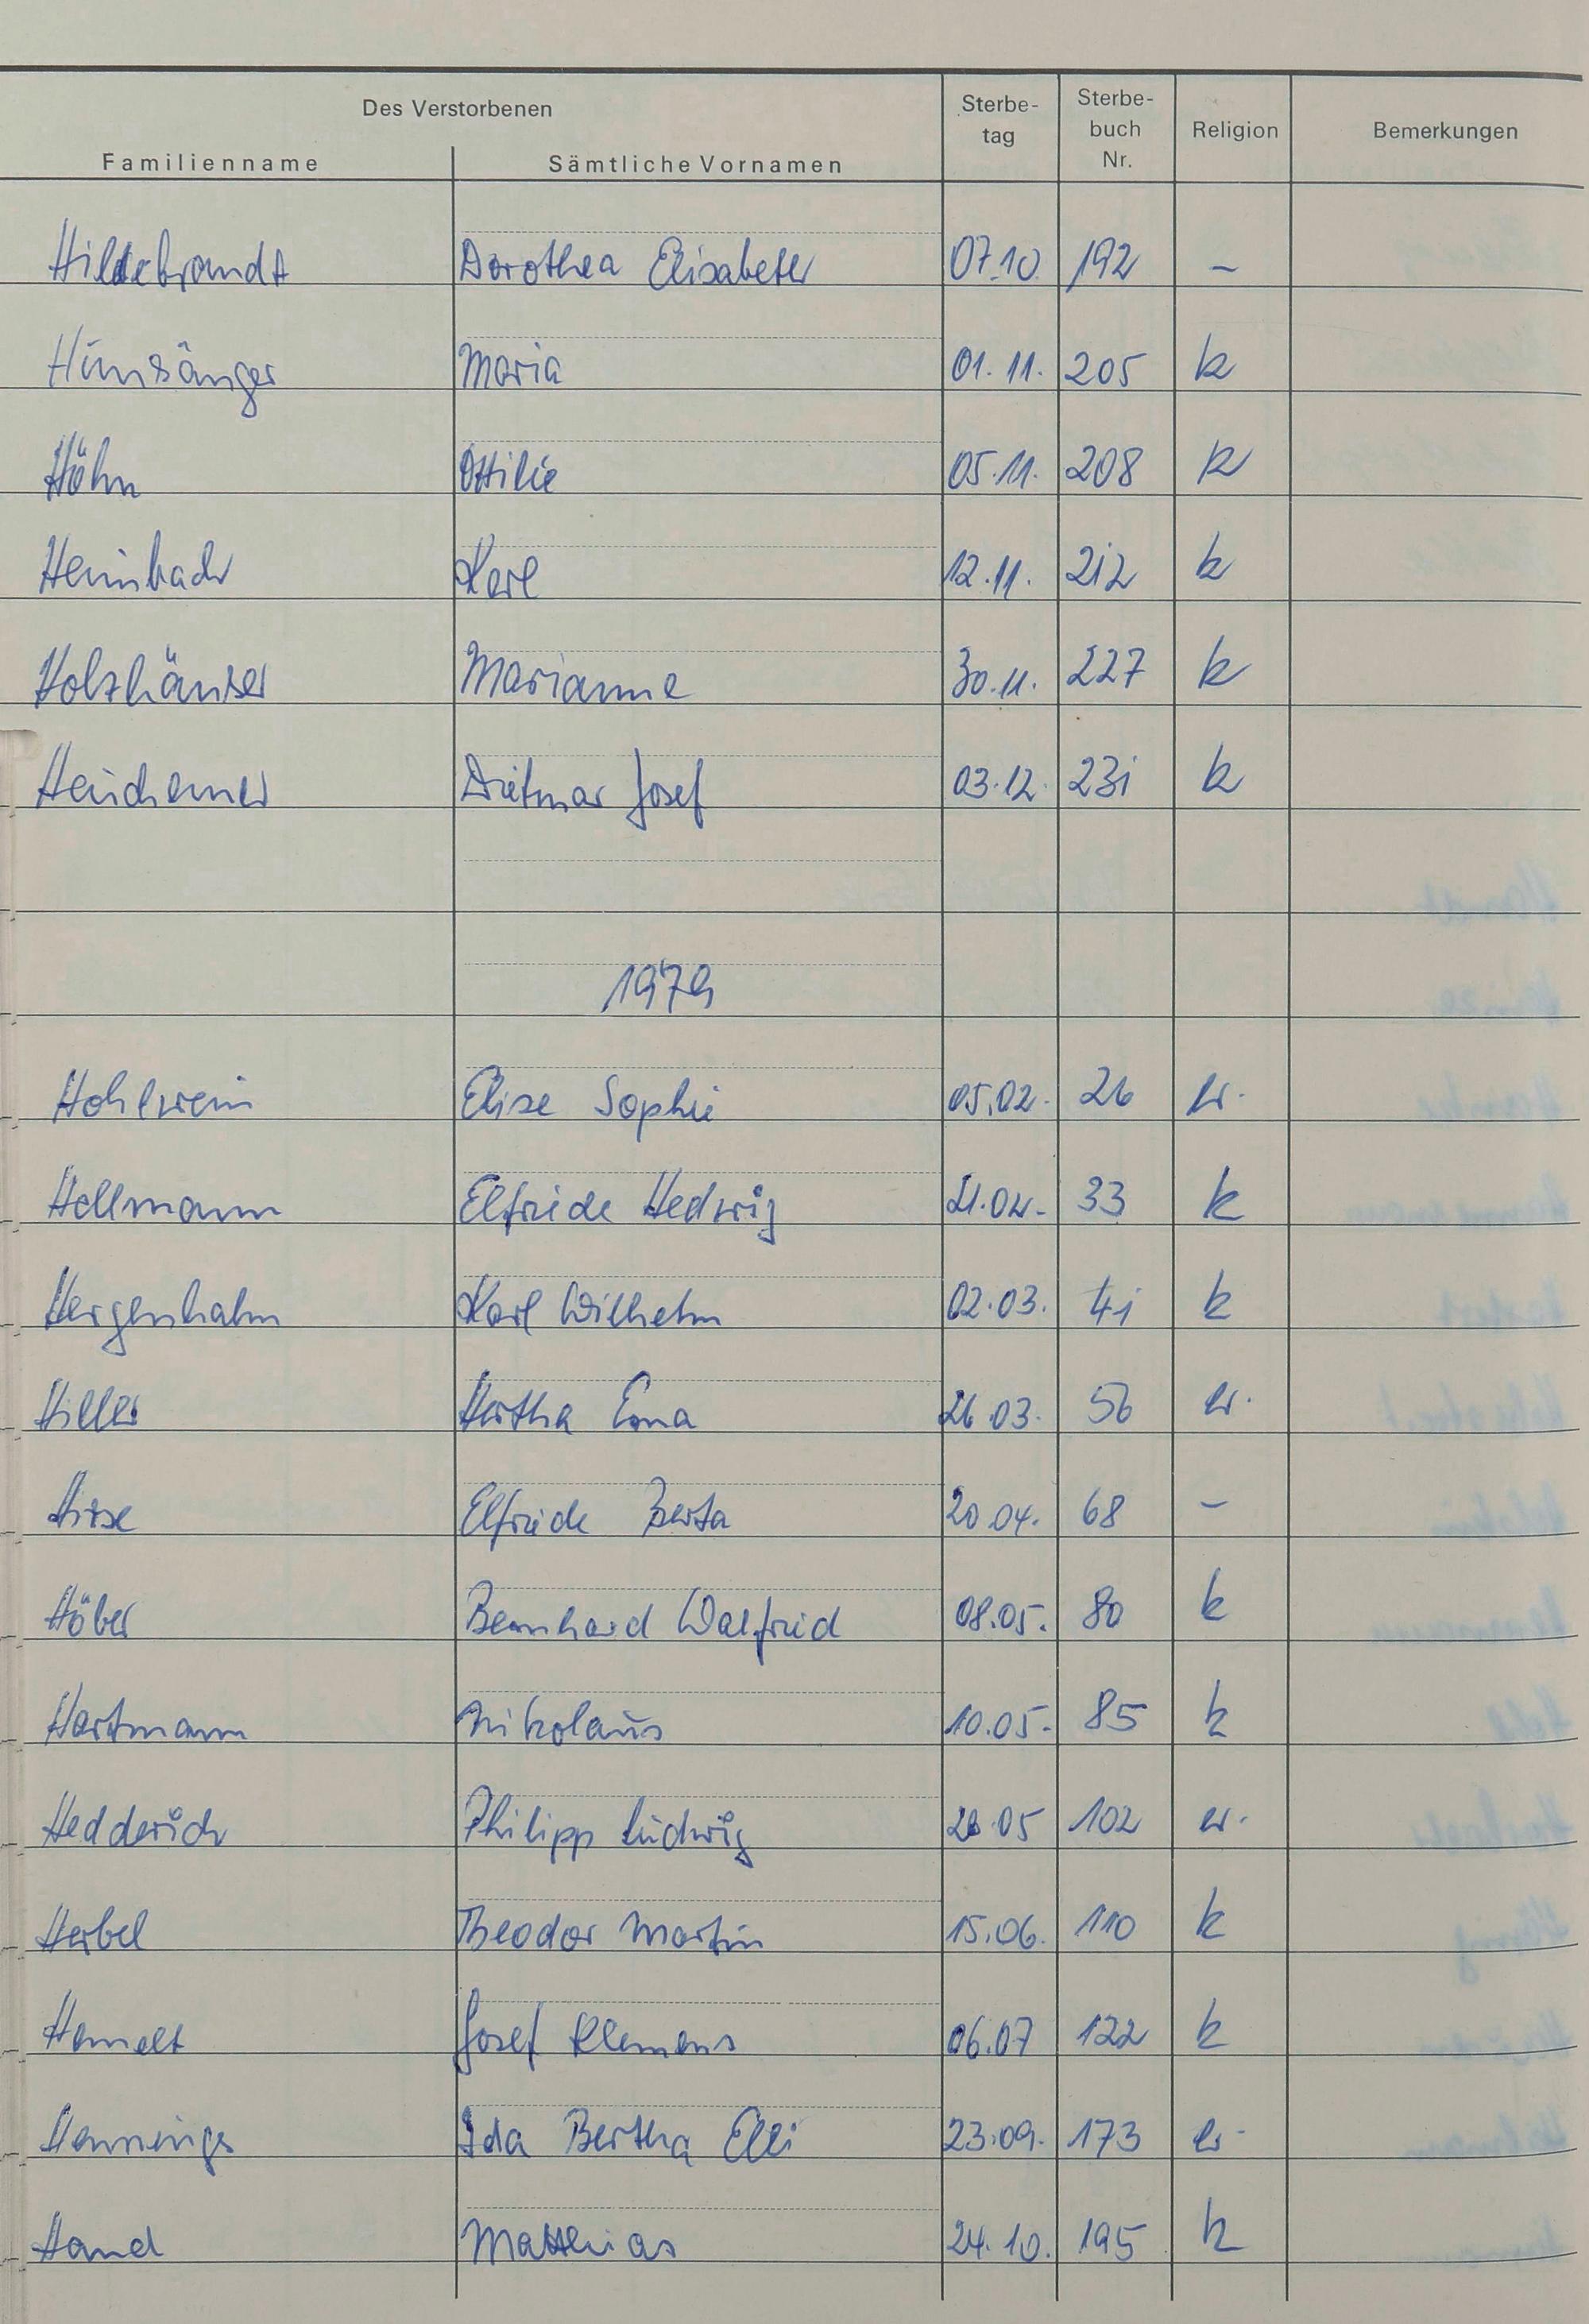 Des Verstorbenen
Familienname Sämtliche Vornamen Sterbe-tag Sterbe-buch Nr. Religion Bemerkungen
Hildebrandt Dorothea Elisabeth 07.10. 192 –
Hünsänger Maria 01.11. 205 k
Höhn Ottilie 05.11. 208 k
Heimbach Karl 12.11. 212 k
Holzhäuser Marianne 30.11. 227 k
Heidemer Dietmar Josef 03.12. 231 k
1979
Hohlwein Elise Sophie 05.02. 26 ev.
Hellmann Elfriede Hedwig 21.02. 33 k
Hergenhahn Karl Wilhelm 02.03. 41 k
Hiller Hertha Erna 26.03. 56 ev.
Hirse Elfriede Berta 20.04. 68 –
Höber Bernhard Walfried 08.05. 80 k
Hartmann Nikolaus 10.05. 85 k
Hedderich Philipp Ludwig 28.05 102 ev.
Herbel Theodor Martin 15.06. 110 k
Hamelt Josef Klemens 06.07 122 k
Hennings Ida Bertha Elli 23.09. 173 ev.
Hand Matthias 24.10. 195 k